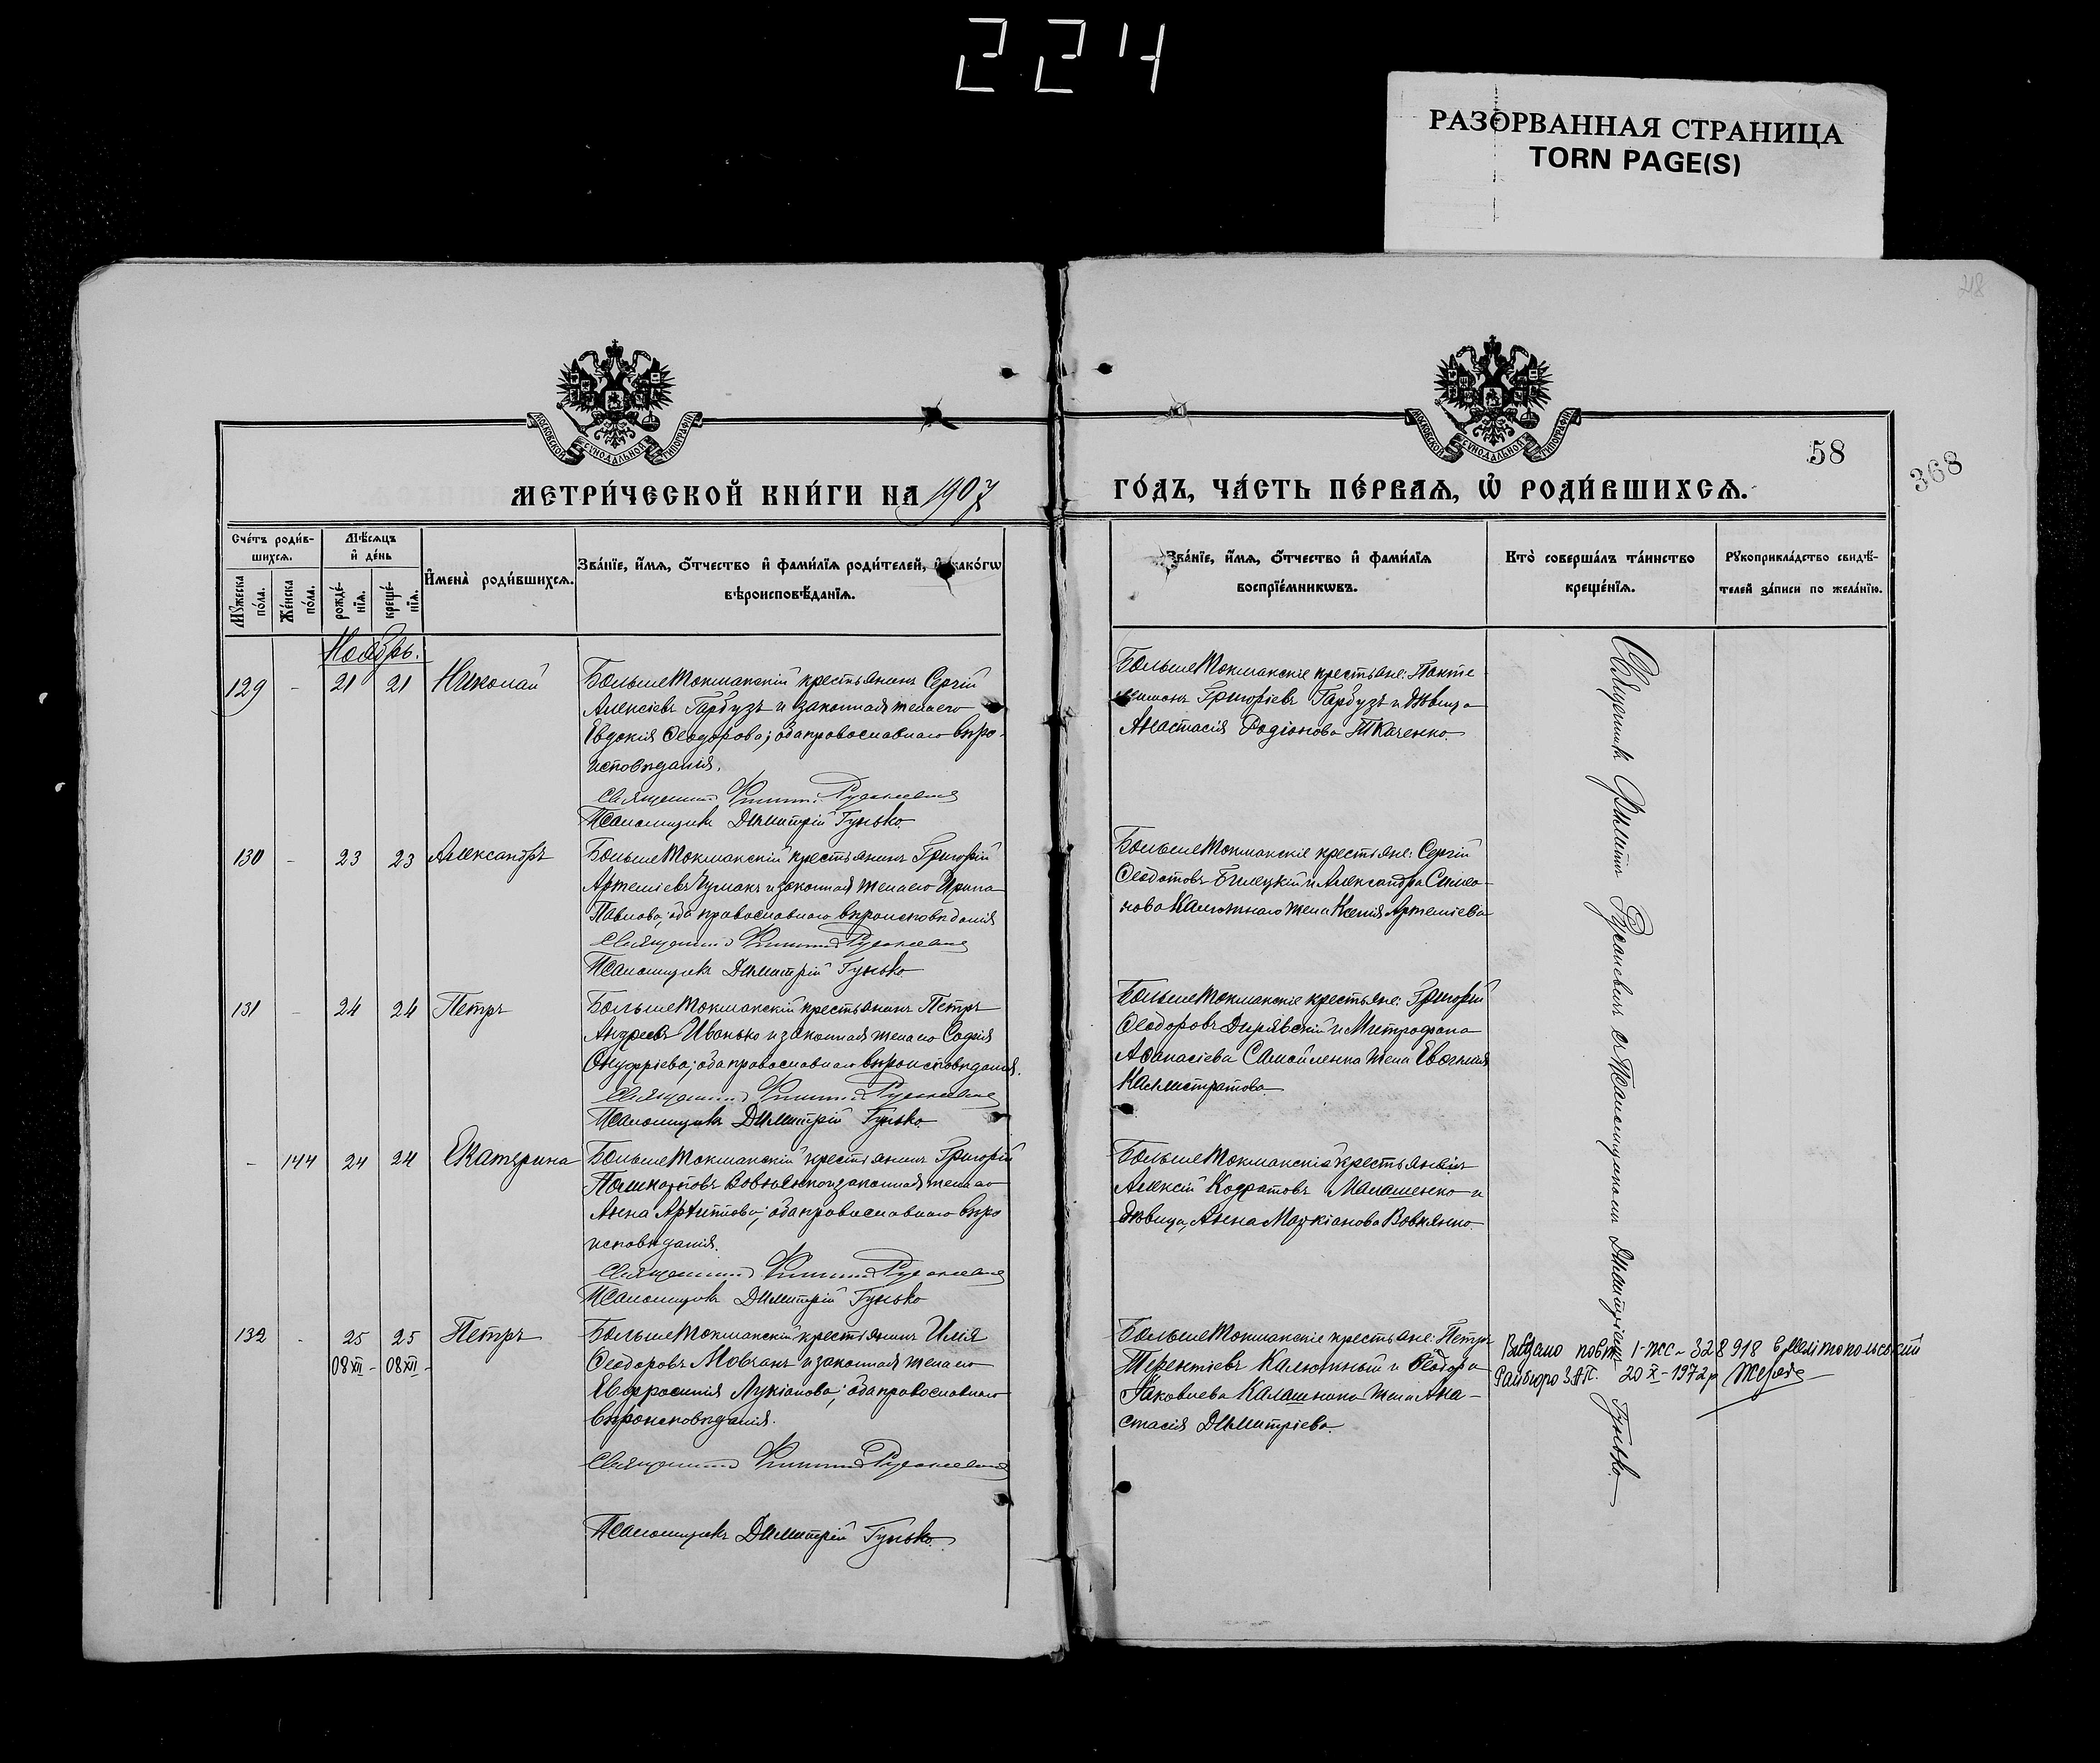 224
РАЗОРВАННАЯ СТРАНИЦА
TORN PAGE(S)
218
МОСКОВСКОЙ СѴНОДАЛЬНОЙ ТИПОГРАФІИ
МОСКОВСКОЙ СѴНОДАЛЬНОЙ ТИПОГРАФІИ
58
368
МЕТРИ́ЧЕСКОЙ КНИ́ГИ НА 1907
ГО́ДЪ, ЧА́СТЬ ПЕ́РВАѦ, Ѡ҆ РОДИ́ВШИХСѦ.
Сче́тъ роди́в-
шихсѧ.
Мꙋ́жеска по́ла.
Же́нска по́ла.
Мѣ́сѧцъ
и҆ де́нь
рожде́-
нїѧ.
креще́-
нїѧ.
И҆мена̀ роди́вшихсѧ.
Зва́нїе, и҆́мѧ, ѻ҆́тчество и҆ фами́лїѧ роди́телей, и҆ како́гѡ
вѣроисповѣ́данїѧ.
Зва́нїе, и҆́мѧ, ѻ҆́тчество и҆ фами́лїѧ
воспрїе́мникѡвъ.
Кто̀ соверша́лъ та́инство
креще́нїѧ.
Рꙋкоприкла́дство свидѣ́-
телей за́писи по жела́нїю.
Ноябрь.
129 - 21 21 Николай
БольшеТокмакскій крестьянинъ Сергій
Алексіевъ Гарбузъ и законная жена его
Евдокія Ѳеодорова; оба православнаго вѣро-
исповѣданія.
Священникъ Филиппъ Русаневичъ
Псаломщикъ Димитрій Гунько.
БольшеТокмакскіе крестьяне: Панте
леимонъ Григоріевъ Гарбузъ и дѣвица
Анастасія Родіонова Ткаченко.
130 - 23 23 Александръ
БольшеТокмакскій крестьянинъ Григорій
Артеміевъ Чумакъ и законная жена его Ирина
Павлова; оба православнаго вѣроисповѣданія
Священникъ Филиппъ Русаневичъ
Псаломщикъ Димитрій Гунько
БольшеТокмакскіе крестьяне: Сергій
Ѳеодотовъ Билецкій и Александра Симео-
нова Калюжнаго жена Ксенія Артеміева
131 - 24 24 Петръ
БольшеТокмакскій крестьянинъ Петръ
Андреевъ Иванько и законная жена его Софія
Онуфріева; оба православнаго вѣроисповѣданія.
Священникъ Филиппъ Русаневичъ
Псаломщикъ Димитрій Гунько
БольшеТокмакскіе крестьяне: Григорій
Ѳеодоровъ Дирявскій и Митрофана
Аѳанасіева Самойленка жена Евгенія
Каллистратова.
- 144 24 24 Екатерина
БольшеТокмакскій крестьянинъ Григорій
Поликарповъ Вовняенко и законная жена его
Анна Архиппова; оба православнаго вѣро
исповѣданія.
Священникъ Филиппъ Русаневичъ
Псаломщикъ Димитрій Гунько
БольшеТокмакскіе крестьянинъ
Алексій Кодратовъ Малашенко и
дѣвица Анна Маркіанова Вовкянко.
132 - 25 25 Петръ
08 XII - 08 XII -
БольшеТокмакскій крестьянинъ Илія
Ѳеодоровъ Мовчанъ и законная жена его
Евфросинія Лукіанова; оба православнаго
вѣроисповѣданія.
Священникъ Филиппъ Русаневичъ
Псаломщикъ Димитрій Гунько.
БольшеТокмакскіе крестьяне: Петръ
Терентіевъ Калюжный и Ѳеодора
Іаковлева Калашника жена Ана-
стасія Димитріева.
Священникъ Филиппъ Русаневичъ съ Псаломщикомъ Димитріемъ Гунько.
Видано повт. I-ЖС ~ 328918 в Мелітопольський
Райбюро ЗАГС. 20 X - 1972 р